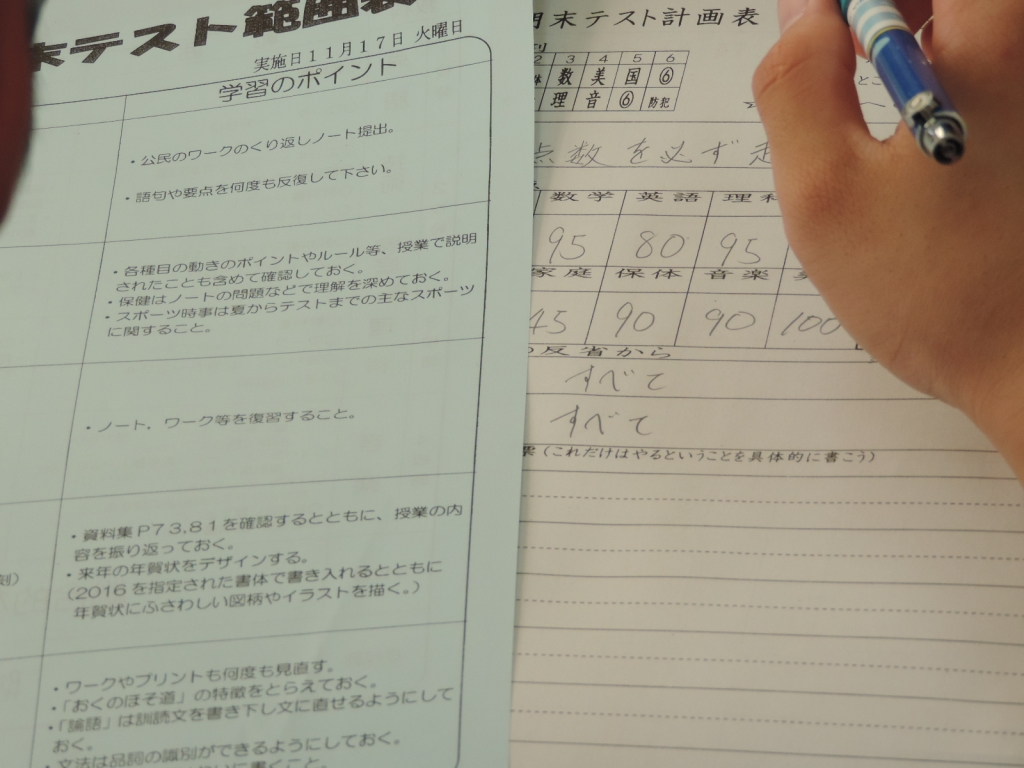 末テスト範囲表
実施日11月17日 火曜日
学習のポイント
・公民のワークのくり返しノート提出。
・語句や要点を何度も反復して下さい。
・各種目の動きのポイントやルール等、授業で説明
されたことも含めて確認しておく。
・保健はノートの問題などで理解を深めておく。
・スポーツ時事は夏からテストまでの主なスポーツ
に関すること。
・ノート，ワーク等を復習すること。
・資料集P73,81を確認するとともに、授業の内
容を振り返っておく。
・来年の年賀状をデザインする。
（2016を指定された書体で書き入れるとともに
年賀状にふさわしい図柄やイラストを描く。）
刻）
・ワークやプリントも何度も見直す。
・「おくのほそ道」の特徴をとらえておく。
・「論語」は訓読文を書き下し文に直せるようにして
おく。
・文法は品詞の識別ができるようにしておく。
期末テスト計画表
2 3 4 5 6
数 美 国 ⑥
理 音 ⑥ 防犯
点数を必ず
数学 英語 理科
95 80 95
家庭 保体 音楽
45 90 90 100
の反省から
すべて
すべて
（これだけはやるということを具体的に書こう）